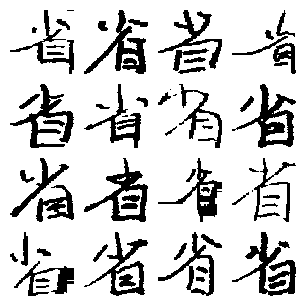 省省省省
省省省省
省省省省
省省省省